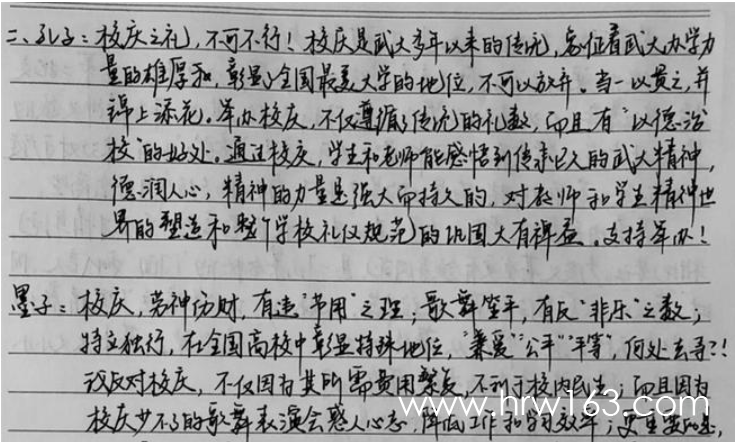 二、孔子：校庆之礼，不可不行！校庆是武大多年以来的传统，象征着武大办学力
量的雄厚和，彰显了全国最美大学的地位，不可以放弃。当一以贯之，并
锦上添花。举办校庆，不仅遵循了传统的礼数，而且有“以德治
校”的好处。通过校庆，学生和老师能感悟到传承已久的武大精神，
德润人心，精神的力量是强大而持久的，对教师和学生精神世
界的塑造和整个学校礼仪规范的巩固大有裨益。支持举办！
墨子：校庆，劳神伤财，有违“节用”之理；歌舞笙平，有反“非乐”之数；
特立独行，在全国高校中彰显特殊地位，“兼爱”“公平”“平等”何处去寻？！
我反对校庆，不仅因为其所需费用繁复，不利于校内民生；而且因为
校庆少不了的歌舞表演会惑人心志，降低工作和学习效率；更重要的是，
www.hrw163.com